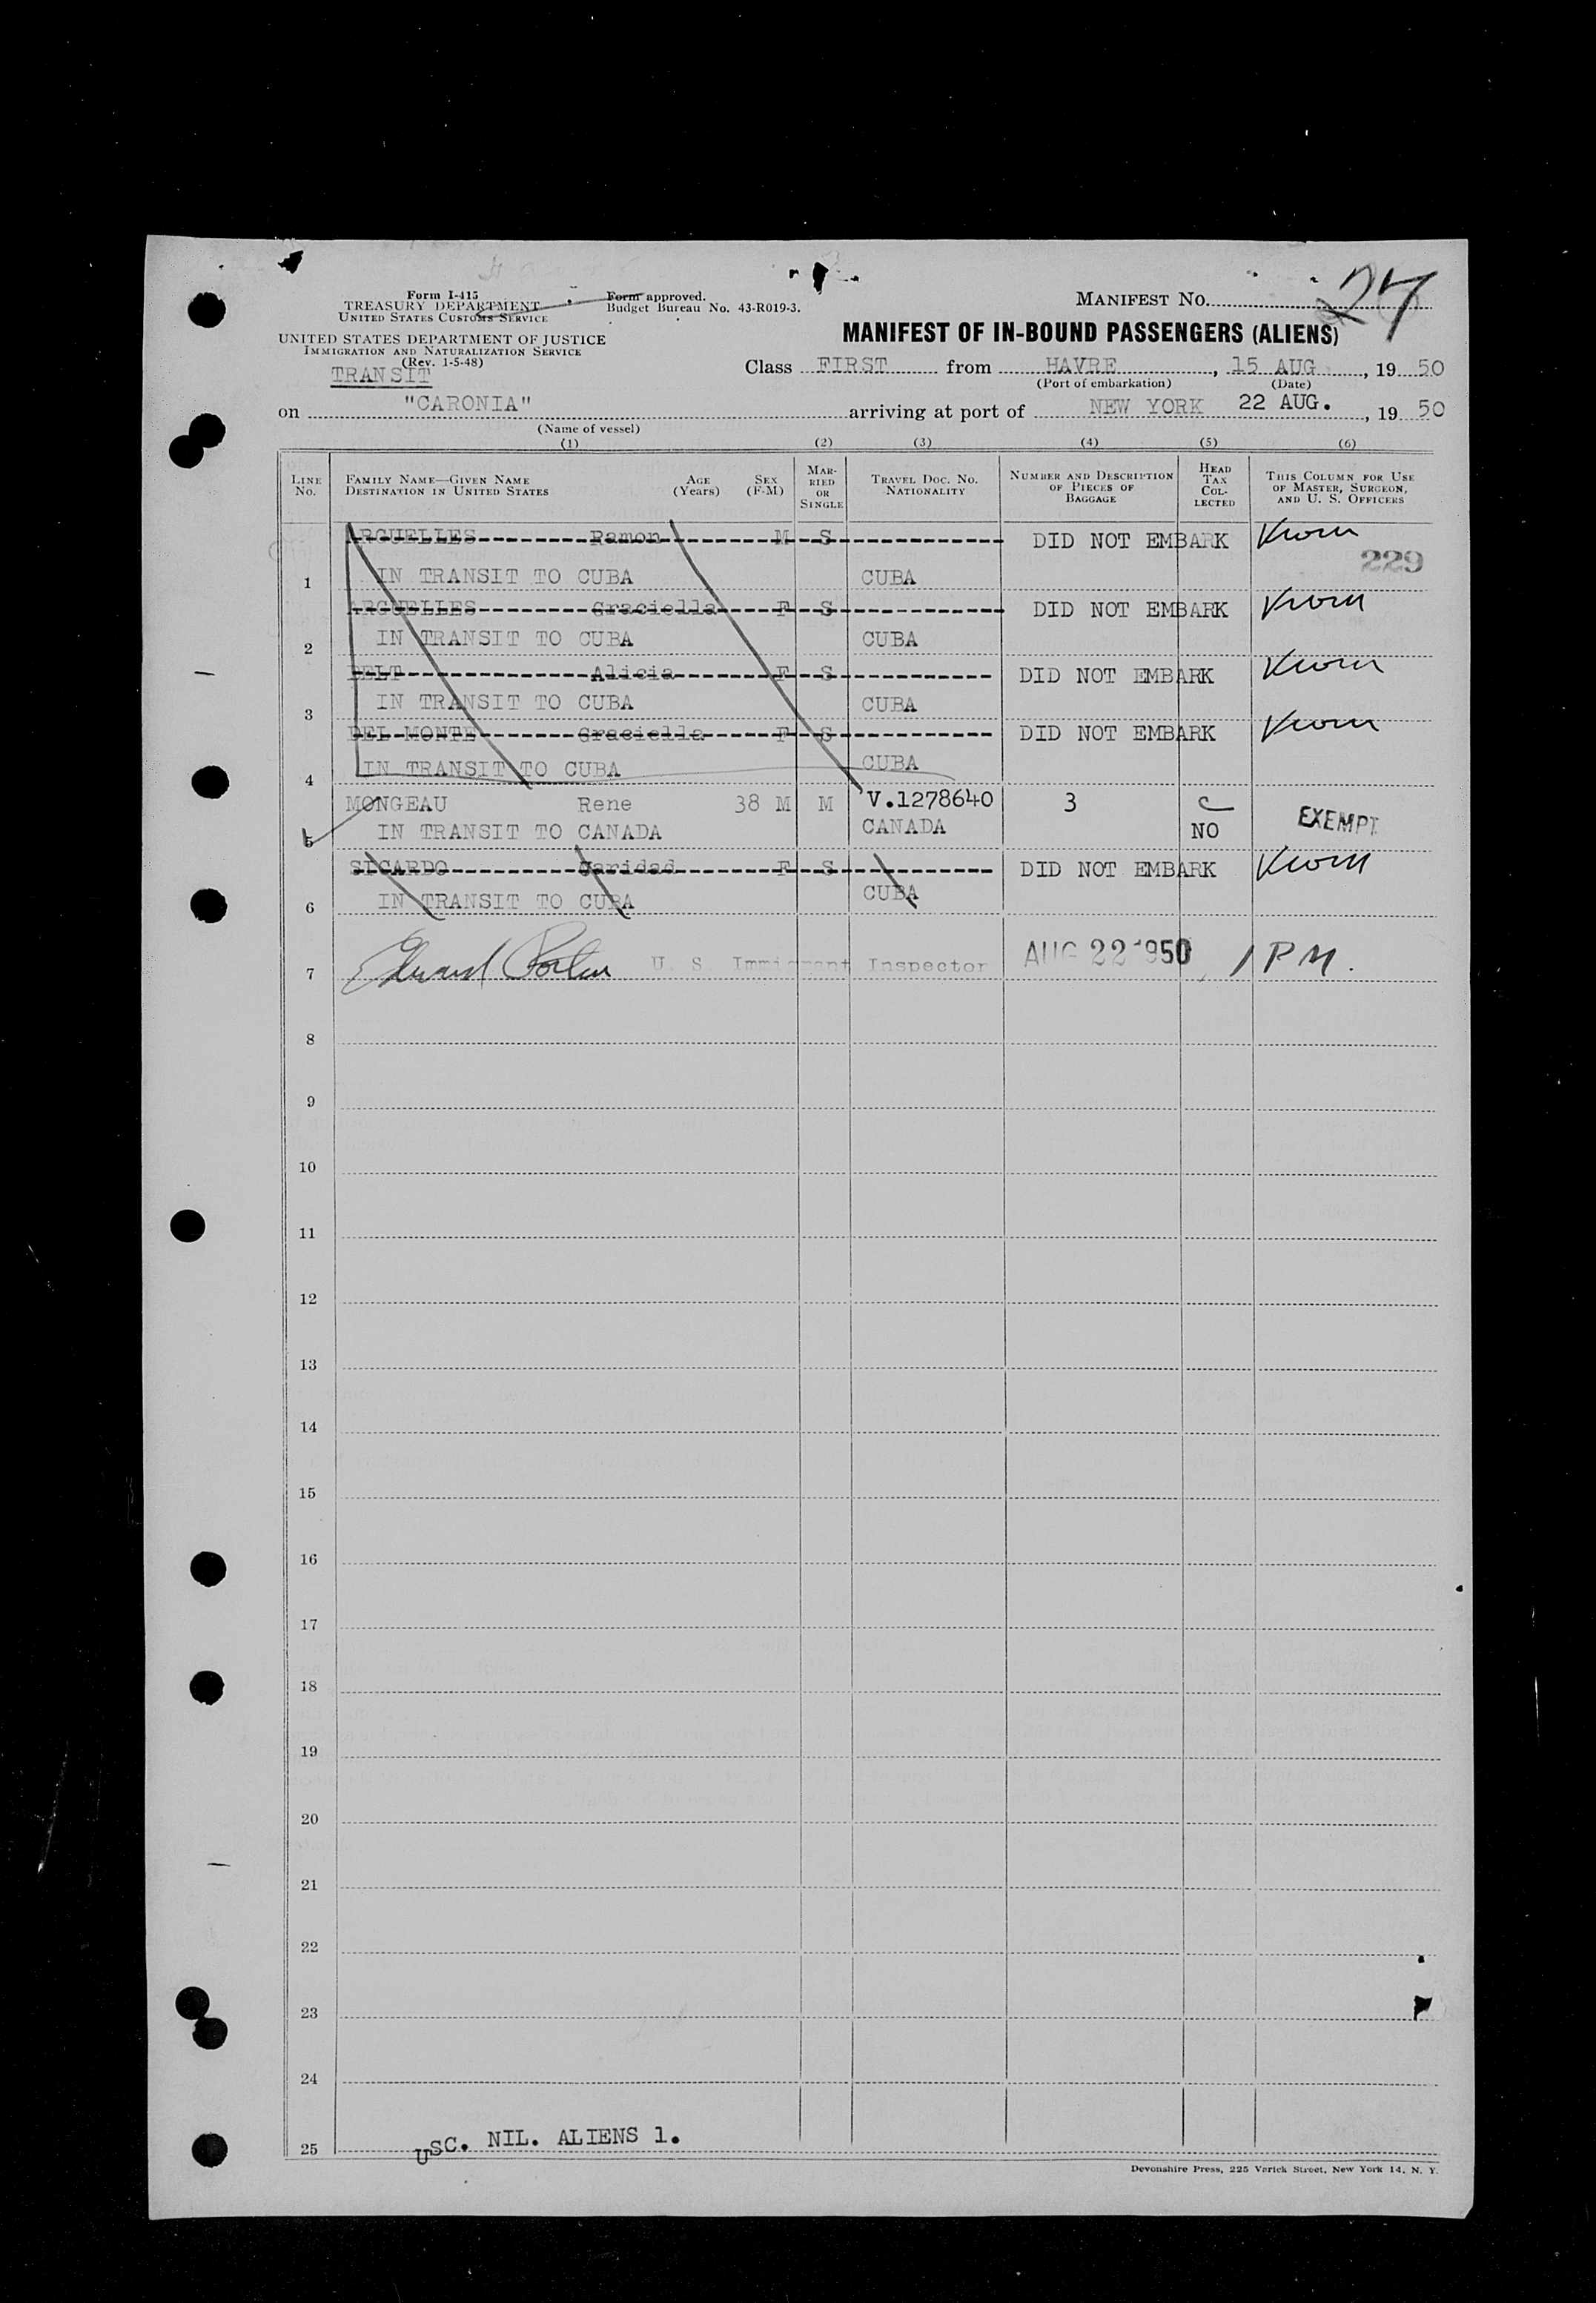 27
Form I-415
TREASURY DEPARTMENT
UNITED STATES CUSTOMS SERVICE
Form approved.
Budget Bureau No. 43-R019-3.
MANIFEST No.
UNITED STATES DEPARTMENT OF JUSTICE
IMMIGRATION AND NATURALIZATION SERVICE
(Rev. 1-5-48)
TRANSIT
MANIFEST OF IN-BOUND PASSENGERS (ALIENS)
Class FIRST from HAVRE, 15 AUG, 19 50
(Port of embarkation) (Date)
on "CARONIA" arriving at port of NEW YORK 22 AUG., 19 50
(Name of vessel)
(1) (2) (3) (4) (5) (6)
LINE No. FAMILY NAME—GIVEN NAME DESTINATION IN UNITED STATES AGE (Years) SEX (F-M) MARRIED OR SINGLE TRAVEL DOC. No. NATIONALITY NUMBER AND DESCRIPTION OF PIECES OF BAGGAGE HEAD TAX COLLECTED THIS COLUMN FOR USE OF MASTER, SURGEON, AND U. S. OFFICERS
ARGUELLES Ramon M S DID NOT EMBARK
229
1 IN TRANSIT TO CUBA CUBA
ARGUELLES Graciella F S DID NOT EMBARK
2 IN TRANSIT TO CUBA CUBA
BELT Alicia F S DID NOT EMBARK
3 IN TRANSIT TO CUBA CUBA
DEL MONTE Graciella F S DID NOT EMBARK
4 IN TRANSIT TO CUBA CUBA
MONGEAU Rene 38 M M V.1278640 3 EXEMPT
5 IN TRANSIT TO CANADA CANADA NO
SICARDO Caridad F S DID NOT EMBARK
6 IN TRANSIT TO CUBA CUBA
7 Edward U. S. Immigrant Inspector AUG 22 1950, 1 PM.
8
9
10
11
12
13
14
15
16
17
18
19
20
21
22
23
24
25 USC. NIL. ALIENS 1.
Devonshire Press, 225 Varick Street, New York 14, N. Y.